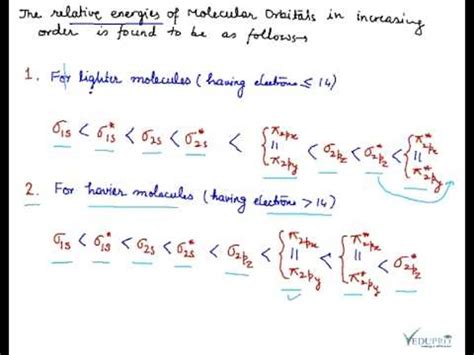 The relative energies of Molecular Orbitals in increasing
order is found to be as follows→
1. For lighter molecules (having electrons ≤ 14)
σ1s < σ*1s < σ2s < σ*2s < { π2px || π2py < σ2pz < σ*2pz < { π*2px || π*2py
2. For havier molecules (having electrons > 14)
σ1s < σ*1s < σ2s < σ*2s < σ2pz < { π2px || π2py < { π*2px || π*2py < σ*2pz
VEDUPRO